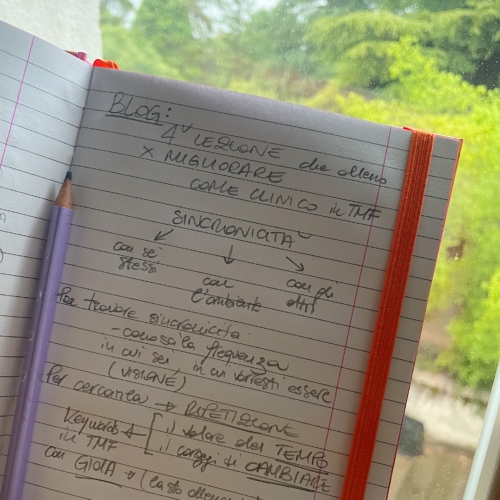 BLOG:
1ª LEZIONE che alleno
X MIGLIORARE
COME CLINICO in TMF
SINCRONICITÀ
con se stessi
con l'ambiente
con gli altri
Per trovare sincronicità:
- conosci la frequenza
in cui sei, in cui vorresti essere
(VISIONE)
Per cercarla → RIPETIZIONE
Keywords ← il valore del TEMPO
in TMF il coraggio di CAMBIARE
con GIOIA → (la sto